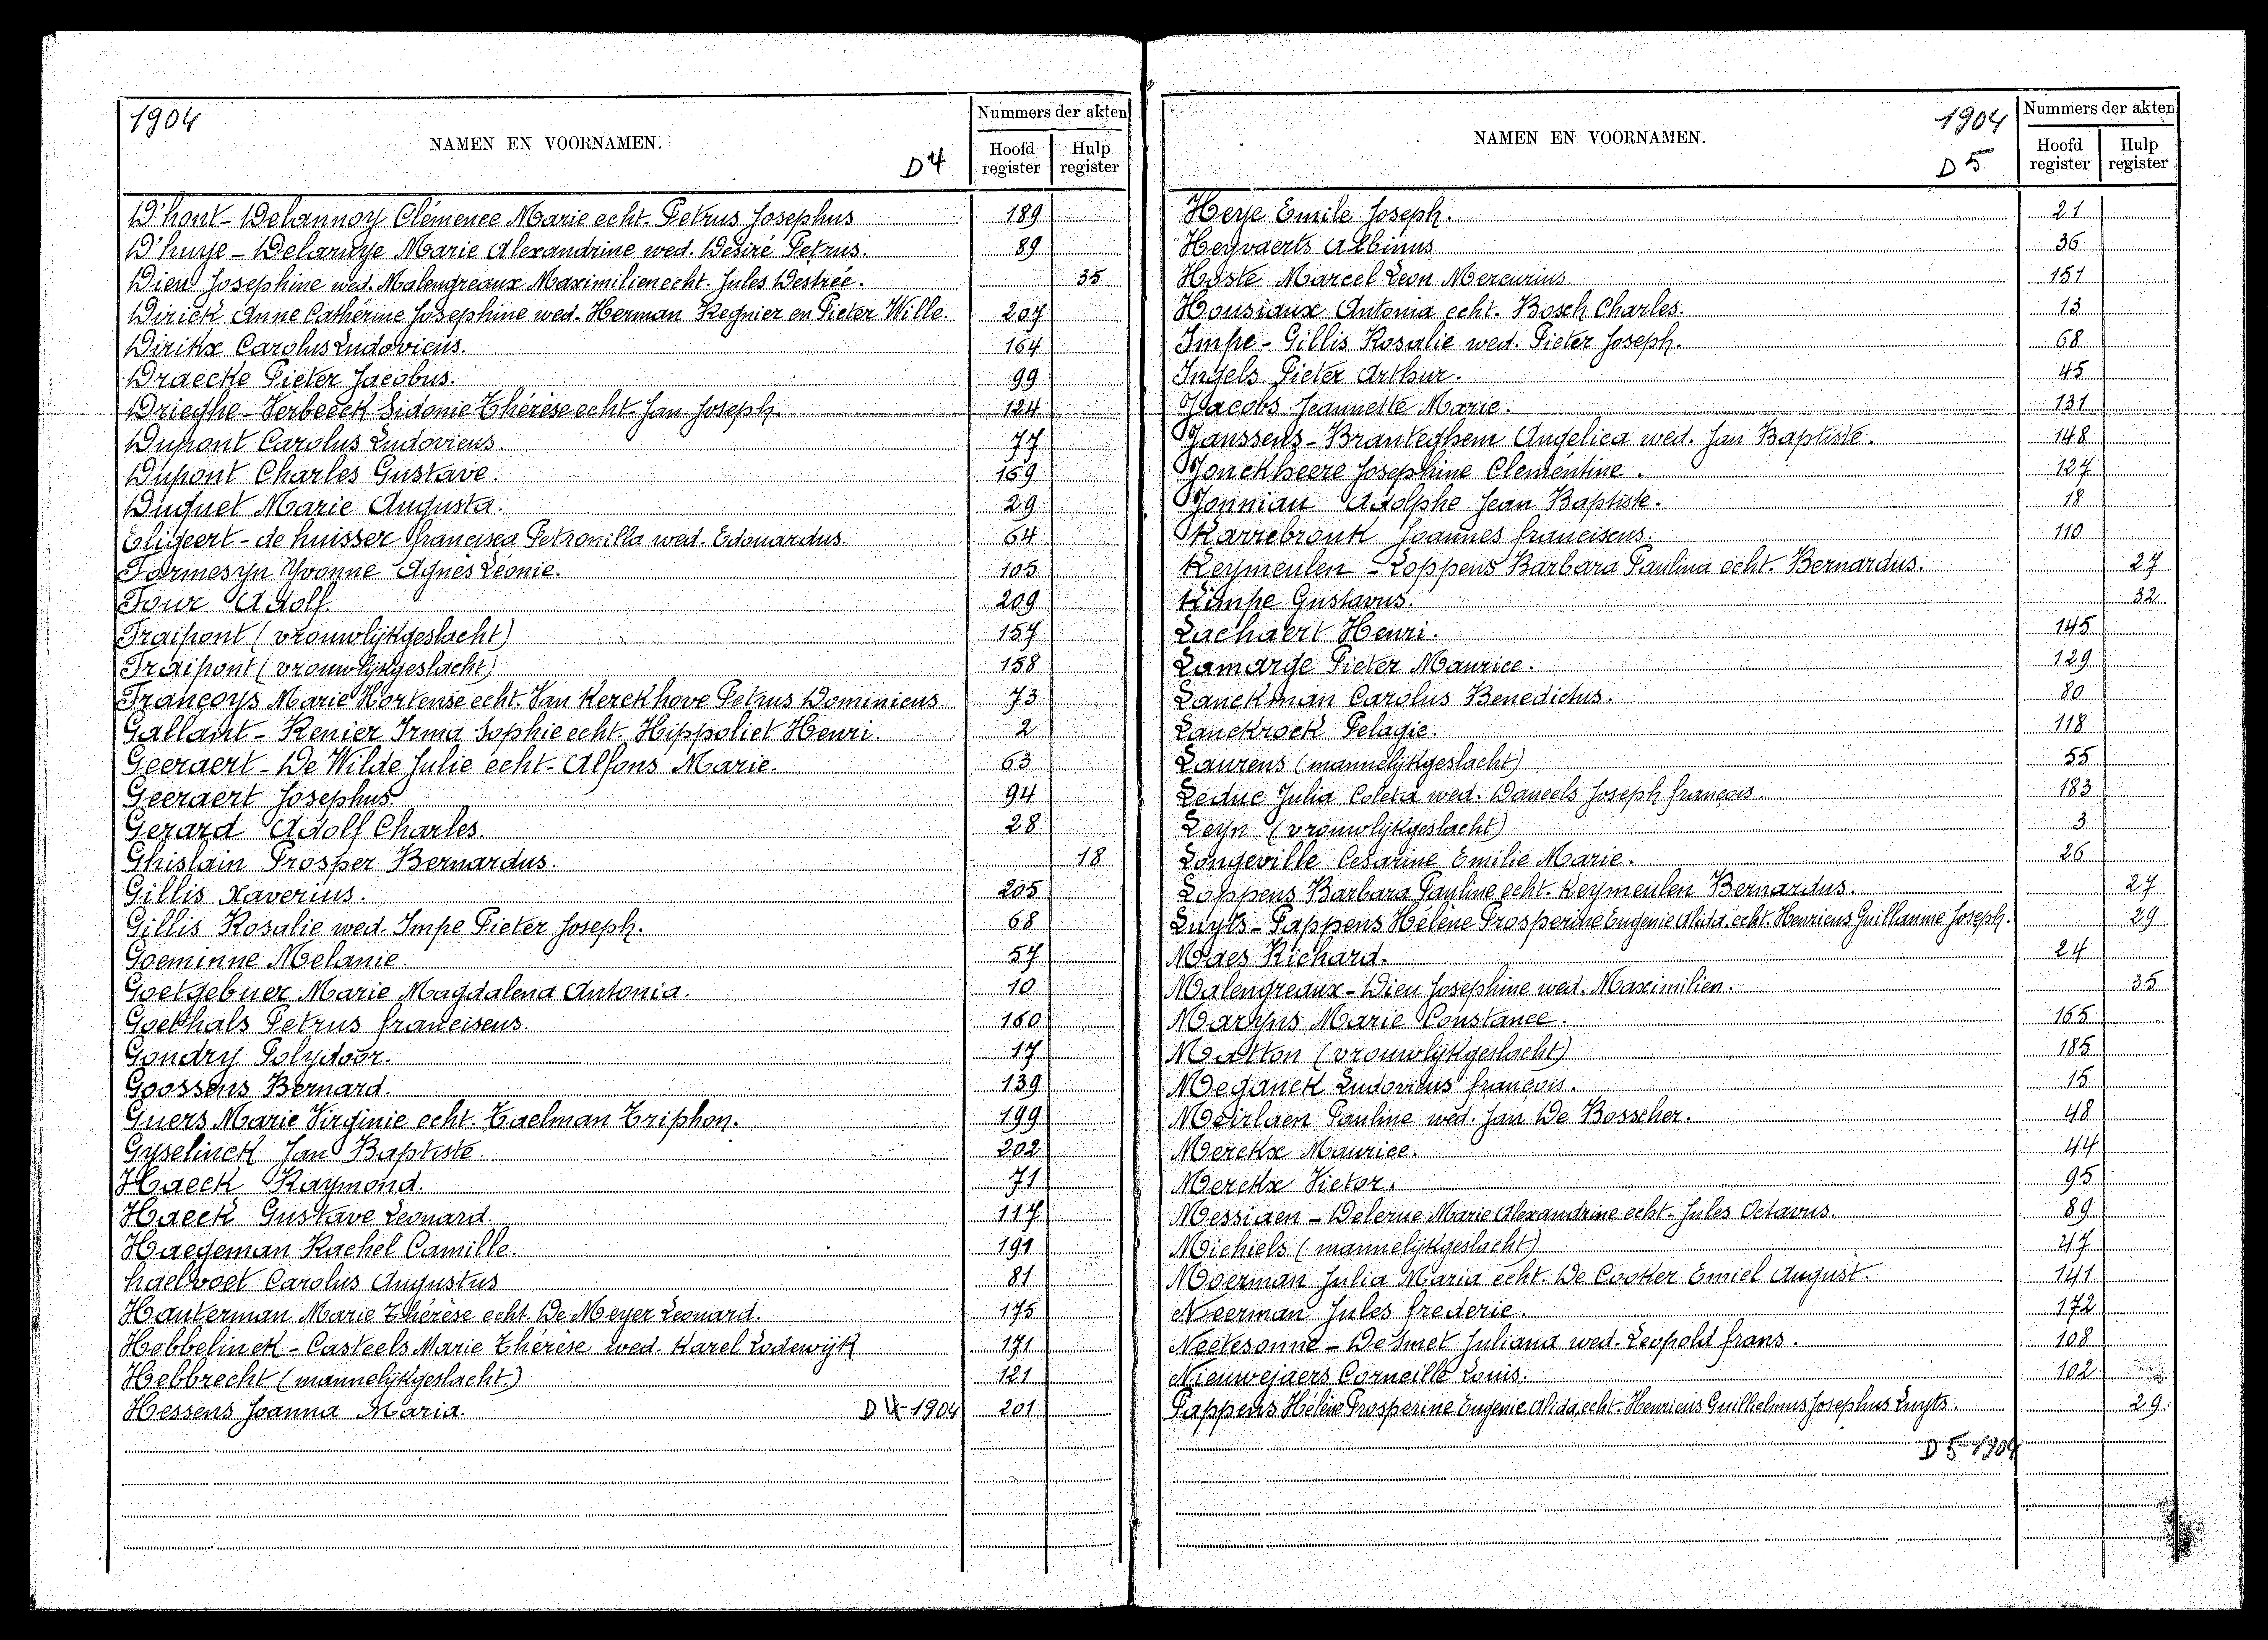 1904
NAMEN EN VOORNAMEN.
D4
Nummers der akten
Hoofd register
Hulp register
D'hont - Delannoy Clémence Marie echt. Petrus Josephus 189
D'huye - Delaruye Marie Alexandrine wed. Desiré Petrus. 89
Dieu Josephine wed. Malengreaux Maximilien echt. Jules Destrée. 35
Dirick Anne Cathérine Josephine wed. Herman Regnier en Pieter Wille. 207
Dirikx Carolus Ludovicus. 164
Draecke Pieter Jacobus. 99
Drieghe - Verbeeck Sidonie Thérèse echt. Jan Joseph. 124
Dupont Carolus Ludovicus 77
Dupont Charles Gustave. 169
Duquet Marie Augusta. 29
Eligeert - de huisser francisca Petronilla wed. Edouardus. 64
Farmesyn Yvonne Agnès Léonie. 105
Four Adolf. 209
Fraipont (vrouwlijkgeslacht) 157
Fraipont (vrouwlijkgeslacht) 158
Françoys Marie Hortense echt. Van Kerckhove Petrus Dominicus 73
Gallant - Renier Irma Sophie echt. Hippoliet Henri. 2
Geeraert - De Wilde Julie echt. Alfons Marie. 63
Geeraert Josephus. 94
Gerard Adolf Charles. 28
Ghislain Prosper Bernardus. 18
Gillis Xaverius. 205
Gillis Rosalie wed. Impe Pieter Joseph. 68
Goeminne Melanie. 57
Goetgebuer Marie Magdalena Antonia. 10
Goethals Petrus franciscus. 160
Gondry Polydoor. 17
Goossens Bernard. 139
Guers Marie Virginie echt. Taelman Triphon. 199
Gyselinck Jan Baptiste. 202
Haeck Raymond. 71
Haeck Gustave Leonard. 117
Haegeman Rachel Camille. 191
haelvoet Carolus Augustus 81
Hauterman Marie Thérèse echt. De Meyer Leonard. 175
Hebbelinck - Casteels Marie Thérèse wed. Karel Lodewijk 171
Hebbrecht (mannelijkgeslacht.) 121
Hessens Joanna Maria. D4-1904 201
NAMEN EN VOORNAMEN.
1904
D5
Nummers der akten
Hoofd register
Hulp register
Heye Emile Joseph. 21
Heyvaerts Albinus 36
Hoste Marcel Leon Mercurius 151
Housiaux Antonia echt. Bosch Charles. 13
Impe - Gillis Rosalie wed. Pieter Joseph. 68
Ingels Pieter Arthur. 45
Jacobs Jeannette Marie. 131
Janssens - Branteghem Angelica wed. Jan Baptiste. 148
Jonckheere Josephine Clementine. 127
Jonniau Adolphe Jean Baptiste. 18
Karrebrouk Joannes franciscus. 110
Keymeulen - Loppens Barbara Paulina echt. Bernardus. 27
Kimpe Gustavus. 32
Lachaert Henri. 145
Lamarge Pieter Maurice. 129
Lanckman Carolus Benedictus. 80
Lanckrock Pelagie. 118
Laurens (mannelijkgeslacht) 55
Leduc Julia Coleta wed. Daneels Joseph françois. 183
Leyn (vrouwlijkgeslacht) 3
Longeville Cesarine Emilie Marie. 26
Loppens Barbara Pauline echt. Keymeulen Bernardus. 27
Luyts - Pappens Hélène Prosperine Eugenie Alida echt. Henricus Guillaume Joseph. 29
Maes Richard. 24
Malengreaux - Dieu Josephine wed. Maximilien. 35
Maryns Marie Constance. 165
Matton (vrouwlijkgeslacht) 185
Meganck Ludovicus françois. 15
Meirlaen Pauline wed. Jan De Bosscher. 48
Merckx Maurice. 44
Merckx Victor. 95
Messiaen - Delerue Marie Alexandrine echt. Jules Octavus 89
Michiels (mannelijkgeslacht) 47
Moerman Julia Maria echt. De Cooker Emiel August. 141
Neerman Jules frederic. 172
Neetesonne - De Smet Juliana wed. Leopold frans. 108
Nieuwejaers Corneille Louis. 102
Pappens Hélène Prosperine Eugenie Alida, echt. Henricus Guillielmus Josephus Luyts. 29
D5-1904